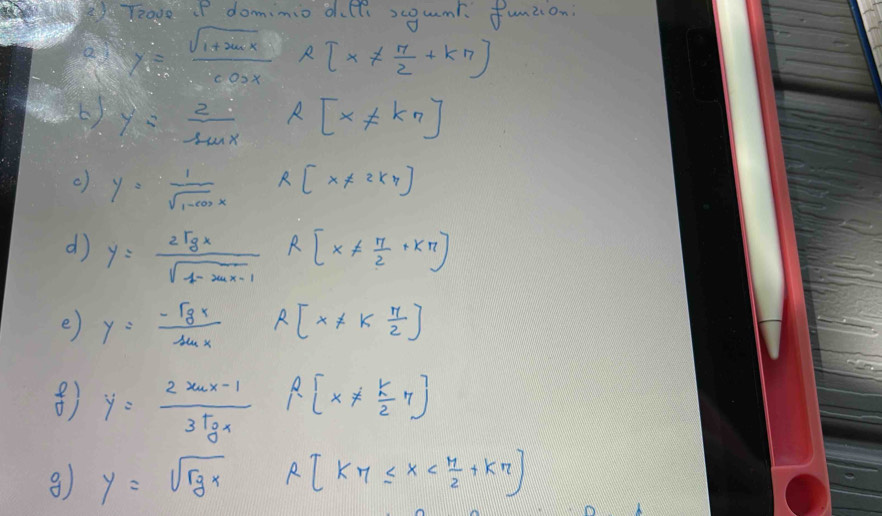 2) Trova il dominio delle seguenti funzioni
a) y = √(1+sen x) / cos x R [x ≠ π/2 + Kπ]
b) y = 2 / sen x R [x ≠ kπ]
c) y = 1 / √(1-cos x) R [x ≠ 2Kπ]
d) y = 2 Tg x / √(1-sen x-1) R [x ≠ π/2 + Kπ]
e) y = -Tg x / sen x R [x ≠ K π/2]
f) y = 2 sen x-1 / 3 Tg x R [x ≠ K/2 π]
g) y = √(Tg x) R [Kπ ≤ x < π/2 + Kπ]